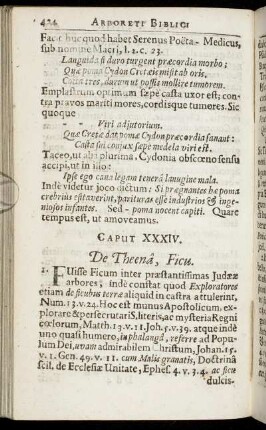 424 ARBORETI BIBLICI
Facit huc quod habet Serenus Poëta-Medicus,
sub nomine Macri, l. 2. c. 23.
Languida si duro turgent præcordia morbo;
Quæ poma Cydon Cretæis misit ab oris,
Cocta tres, durum ut possis mollire tumorem.
Emplastrum optimum sæpè casta uxor est; con-
tra pravos mariti mores, cordisque tumores. Sic
quoque
Viri adjutorium.
Quæ Cretæ dat poma Cydon præcordia sanant:
Casta sui conjux sæpe medela viri est.
Taceo, ut alia plurima, Cydonia obscœno sensu
accipi, ut in illo:
Ipse ego cana legam tenerâ lanugine mala.
Inde videtur joco dictum: Si prægnantes hæ poma
crebrius estitaverint, parituras esse industrios & inge-
niosos infantes. Sed - poma nocent capiti. Quare
tempus est, ut amoveamus.
CAPUT XXXIV.
De Theenâ, Ficu.
1. FUisse Ficum inter præstantissimas Judææ
arbores, inde constat quod Exploratores
etiam de ficubus terræ aliquid in castra attulerint,
Num. 13. v. 24. Hoc est munus Apostolicum, ex-
plorare & perscrutari S. literis, ac mysteria Regni
cœlorum, Matth. 13. v. 11. Joh. 5. v. 39. atque inde
uno quasi humero, in phalangâ, referre ad Popu-
lum Dei, uvam admirabilem Christum, Johan. 15.
v. 1. Gen. 49. v. 11. cum Malis granatis, Doctrinâ
scil. de Ecclesiæ Unitate, Ephes. 4. v. 3. 4. ac ficu
dulcis-